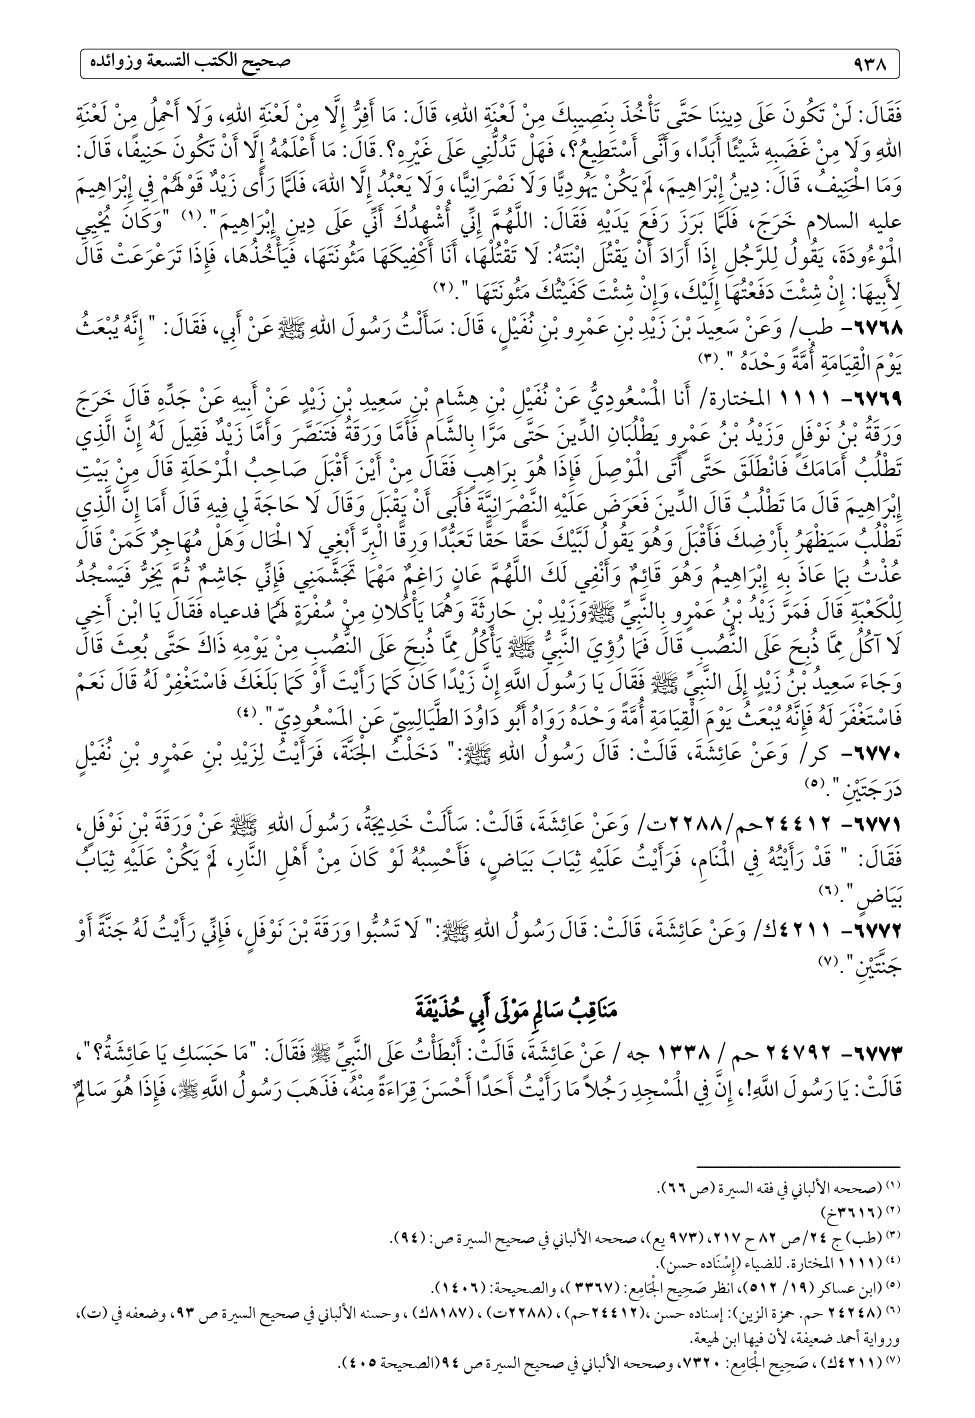 ٩٣٨
صحيح الكتب التسعة وزوائده
فَقَالَ: لَنْ تَكُونَ عَلَى دِينِنَا حَتَّى تَأْخُذَ بِنَصِيبِكَ مِنْ لَعْنَةِ اللهِ، قَالَ: مَا أَفِرُّ إِلَّا مِنْ لَعْنَةِ اللهِ، وَلَا أَحْمِلُ مِنْ لَعْنَةِ
اللهِ وَلَا مِنْ غَضَبِهِ شَيْئًا أَبَدًا، وَأَنَّى أَسْتَطِيعُ؟، فَهَلْ تَدُلُّنِي عَلَى غَيْرِهِ؟. قَالَ: مَا أَعْلَمُهُ إِلَّا أَنْ تَكُونَ حَنِيفًا، قَالَ:
وَمَا الْحَنِيفُ، قَالَ: دِينُ إِبْرَاهِيمَ، لَمْ يَكُنْ يَهُودِيًّا وَلَا نَصْرَانِيًّا، وَلَا يَعْبُدُ إِلَّا اللهَ، فَلَمَّا رَأَى زَيْدٌ قَوْلَهُمْ فِي إِبْرَاهِيمَ
عليه السلام خَرَجَ، فَلَمَّا بَرَزَ رَفَعَ يَدَيْهِ فَقَالَ: اللَّهُمَّ إِنِّي أُشْهِدُكَ أَنِّي عَلَى دِينِ إِبْرَاهِيمَ". (١) "وَكَانَ يُحْيِي
الْمَوْءُودَةَ، يَقُولُ لِلرَّجُلِ إِذَا أَرَادَ أَنْ يَقْتُلَ ابْنَتَهُ: لَا تَقْتُلْهَا، أَنَا أَكْفِيكَهَا مَئُونَتَهَا، فَيَأْخُذُهَا، فَإِذَا تَرَعْرَعَتْ قَالَ
لِأَبِيهَا: إِنْ شِئْتَ دَفَعْتُهَا إِلَيْكَ، وَإِنْ شِئْتَ كَفَيْتُكَ مَئُونَتَهَا ". (٢)
٦٧٦٨- طب/ وَعَنْ سَعِيدَ بْنَ زَيْدِ بْنِ عَمْرِو بْنِ نُفَيْلٍ، قَالَ: سَأَلْتُ رَسُولَ اللهِ ﷺ عَنْ أَبِي، فَقَالَ: " إِنَّهُ يُبْعَثُ
يَوْمَ الْقِيَامَةِ أُمَّةً وَحْدَهُ ". (٣)
٦٧٦٩- ١١١١ المختارة/ أَنا الْمَسْعُودِيُّ عَنْ نُفَيْلِ بْنِ هِشَامِ بْنِ سَعِيدِ بْنِ زَيْدٍ عَنْ أَبِيهِ عَنْ جَدِّهِ قَالَ خَرَجَ
وَرَقَةُ بْنُ نَوْفَلٍ وَزَيْدُ بْنُ عَمْرٍو يَطْلُبَانِ الدِّينَ حَتَّى مَرَّا بِالشَّامِ فَأَمَّا وَرَقَةُ فَتَنَصَّرَ وَأَمَّا زَيْدٌ فَقِيلَ لَهُ إِنَّ الَّذِي
تَطْلُبُ أَمَامَكَ فَانْطَلَقَ حَتَّى أَتَى الْمَوْصِلَ فَإِذَا هُوَ بِرَاهِبٍ فَقَالَ مِنْ أَيْنَ أَقْبَلَ صَاحِبُ الْمَرْحَلَةِ قَالَ مِنْ بَيْتِ
إِبْرَاهِيمَ قَالَ مَا تَطْلُبُ قَالَ الدِّينَ فَعَرَضَ عَلَيْهِ النَّصْرَانِيَّةَ فَأَبَى أَنْ يَقْبَلَ وَقَالَ لَا حَاجَةَ لِي فِيهِ قَالَ أَمَا إِنَّ الَّذِي
تَطْلُبُ سَيَظْهَرُ بِأَرْضِكَ فَأَقْبَلَ وَهُوَ يَقُولُ لَبَّيْكَ حَقًّا حَقًّا تَعَبُّدًا وَرِقًّا الْبِرَّ أَبْغِي لَا الْحَال وَهَلْ مُهَاجِرٌ كَمَنْ قَالَ
عُذْتُ بِمَا عَاذَ بِهِ إِبْرَاهِيمُ وَهُوَ قَائِمٌ وَأَنْفِي لَكَ اللَّهُمَّ عَانٍ رَاغِمٌ مَهْمَا تَجَشَّمَنِي فَإِنِّي جَاشِمٌ ثُمَّ يَخِرُّ فَيَسْجُدُ
لِلْكَعْبَةِ قَالَ فَمَرَّ زَيْدُ بْنُ عَمْرٍو بِالنَّبِيِّ ﷺ وَزَيْدِ بْنِ حَارِثَةَ وَهُمَا يَأْكُلَانِ مِنْ سُفْرَةٍ لَهُمَا فدعياه فَقَالَ يَا ابْن أَخِي
لَا آكُلُ مِمَّا ذُبِحَ عَلَى النُّصُبِ قَالَ فَمَا رُؤِيَ النَّبِيُّ ﷺ يَأْكُلُ مِمَّا ذُبِحَ عَلَى النُّصُبِ مِنْ يَوْمِهِ ذَاكَ حَتَّى بُعِثَ قَالَ
وَجَاءَ سَعِيدُ بْنُ زَيْدٍ إِلَى النَّبِيِّ ﷺ فَقَالَ يَا رَسُولَ اللَّهِ إِنَّ زَيْدًا كَانَ كَمَا رَأَيْتَ أَوْ كَمَا بَلَغَكَ فَاسْتَغْفِرْ لَهُ قَالَ نَعَمْ
فَاسْتَغْفَرَ لَهُ فَإِنَّهُ يُبْعَثُ يَوْمَ الْقِيَامَةِ أُمَّةً وَحْدَهُ رَوَاهُ أَبُو دَاوُدَ الطَّيَالِسِيِّ عَنِ الْمَسْعُودِيّ". (٤)
٦٧٧٠- كر/ وَعَنْ عَائِشَةَ، قَالَتْ: قَالَ رَسُولُ اللهِ ﷺ:" دَخَلْتُ الْجَنَّةَ، فَرَأَيْتُ لِزَيْدِ بْنِ عَمْرِو بْنِ نُفَيْلٍ
دَرَجَتَيْنِ ". (٥)
٦٧٧١- ٢٤٤١٢حم/٢٢٨٨ت/ وَعَنْ عَائِشَةَ، قَالَتْ: سَأَلَتْ خَدِيجَةُ، رَسُولَ اللهِ ﷺ عَنْ وَرَقَةَ بْنِ نَوْفَلٍ،
فَقَالَ: " قَدْ رَأَيْتُهُ فِي الْمَنَامِ، فَرَأَيْتُ عَلَيْهِ ثِيَابَ بَيَاضٍ، فَأَحْسِبُهُ لَوْ كَانَ مِنْ أَهْلِ النَّارِ، لَمْ يَكُنْ عَلَيْهِ ثِيَابُ
بَيَاضٍ ". (٦)
٦٧٧٢- ٤٢١١ك/ وَعَنْ عَائِشَةَ، قَالَتْ: قَالَ رَسُولُ اللهِ ﷺ:" لَا تَسُبُّوا وَرَقَةَ بْنَ نَوْفَلٍ، فَإِنِّي رَأَيْتُ لَهُ جَنَّةً أَوْ
جَنَّتَيْنِ ". (٧)
مَنَاقِبُ سَالِمٍ مَوْلَى أَبِي حُذَيْفَةَ
٦٧٧٣- ٢٤٧٩٢ حم / ١٣٣٨ جه / عَنْ عَائِشَةَ، قَالَتْ: أَبْطَأْتُ عَلَى النَّبِيِّ ﷺ فَقَالَ: "مَا حَبَسَكِ يَا عَائِشَةُ؟"،
قَالَتْ: يَا رَسُولَ اللَّهِ!، إِنَّ فِي الْمَسْجِدِ رَجُلاً مَا رَأَيْتُ أَحَدًا أَحْسَنَ قِرَاءَةً مِنْهُ، فَذَهَبَ رَسُولُ اللَّهِ ﷺ، فَإِذَا هُوَ سَالِمٌ
(١) (صححه الألباني في فقه السيرة (ص ٦٦).
(٢) (٣٦١٦خ)
(٣) (طب) ج ٢٤/ص ٨٢ ح ٢١٧، (٩٧٣ يع)، صححه الألباني في صحيح السيرة ص: (٩٤).
(٤) (١١١١ المختارة. للضياء (إسْنَاده حسن).
(٥) (ابن عساكر (١٩/ ٥١٢)، انظر صَحِيح الْجَامِع: (٣٣٦٧ )، والصحيحة: (١٤٠٦).
(٦) (٢٤٢٤٨ حم. حمزة الزين): إسناده حسن ،(٢٤٤١٢حم) ، (٢٢٨٨ت) ، (٨١٨٧ك) ، وحسنه الألباني في صحيح السيرة ص ٩٣، وضعفه في (ت)،
ورواية أحمد ضعيفة، لأن فيها ابن لهيعة.
(٧) (٤٢١١ك) ، صَحِيح الْجَامِع: ٧٣٢٠، وصححه الألباني في صحيح السيرة ص ٩٤(الصحيحة ٤٠٥).